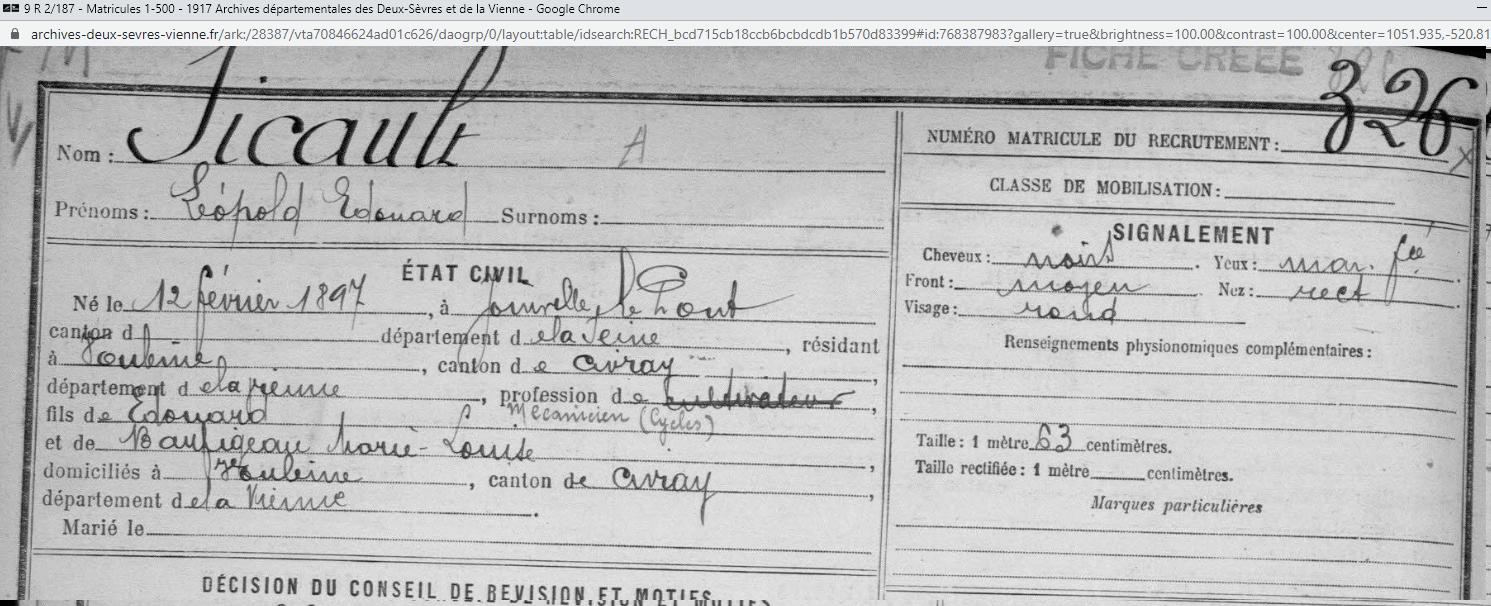 9 R 2/187 - Matricules 1-500 - 1917 Archives départementales des Deux-Sèvres et de la Vienne - Google Chrome
archives-deux-sevres-vienne.fr/ark:/28387/vta70846624ad01c626/daogrp/0/layout:table/idsearch:RECH_bcd715cb18ccb6bcbdcdb1b570d83399#id:768387983?gallery=true&brightness=100.00&contrast=100.00&center=1051.935,-520.81
FICHE CRÉÉE
326
Nom : Sicault A
Prénoms : Léopold Edouard Surnoms :
ÉTAT CIVIL
Né le 12 février 1897, à Joinville le Pont
canton d département de la Seine, résidant
à Joulême, canton de Civray,
département de la Vienne, profession de cultivateur,
Mécanicien (Cycles)
fils de Edouard
et de Marie-Louise,
domiciliés à Voulême, canton de Civray,
département de la Vienne.
Marié le
NUMÉRO MATRICULE DU RECRUTEMENT : x
CLASSE DE MOBILISATION :
SIGNALEMENT
Cheveux : noirs. Yeux : mar. fcé
Front : moyen Nez : rect
Visage : rond
Renseignements physionomiques complémentaires :
Taille : 1 mètre 63 centimètres.
Taille rectifiée : 1 mètre centimètres.
Marques particulières
DÉCISION DU CONSEIL DE REVISION ET MOTIFS